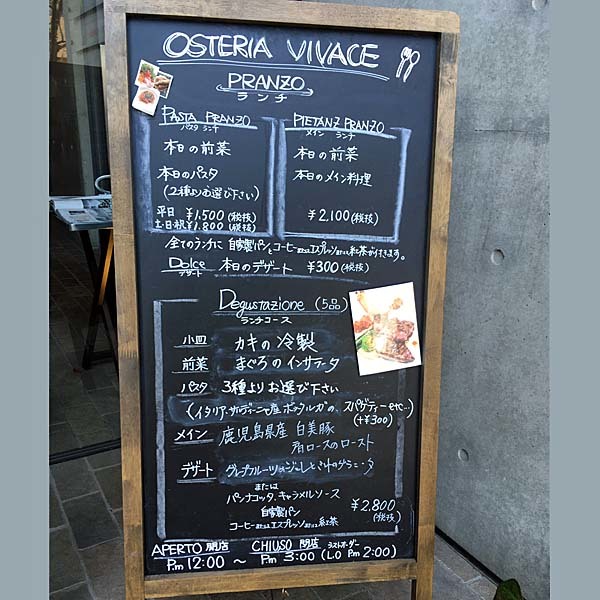 OSTERIA VIVACE
PRANZO
ランチ
PASTA PRANZO
パスタ ランチ
本日の前菜
本日のパスタ
(2種よりお選び下さい)
平日 ¥1,500 (税抜)
土・日・祝 ¥1,800 (税抜)
PIETANZ PRANZO
メイン ランチ
本日の前菜
本日のメイン料理
¥2,100 (税抜)
全てのランチに 自家製パンとコーヒーまたはエスプレッソまたは紅茶が付きます。
Dolce 本日のデザート ¥300 (税抜)
デザート
Degustazione (5品)
ランチコース
小皿 カキの冷製
前菜 まぐろのインサラータ
パスタ 3種よりお選び下さい
(イタリア・サルディーニャ産ボッタルガの、スパゲティー etc...)
(+¥300)
メイン 鹿児島県産 白美豚
肩ロースのロースト
デザート グレープフルーツのジュレと
または
パンナコッタ、キャラメルソース
自家製パン
コーヒーまたはエスプレッソまたは紅茶
¥2,800
(税抜)
APERTO 開店 CHIUSO 閉店 ラストオーダー
P.m 12:00 ～ P.m 3:00 (LO Pm 2:00)